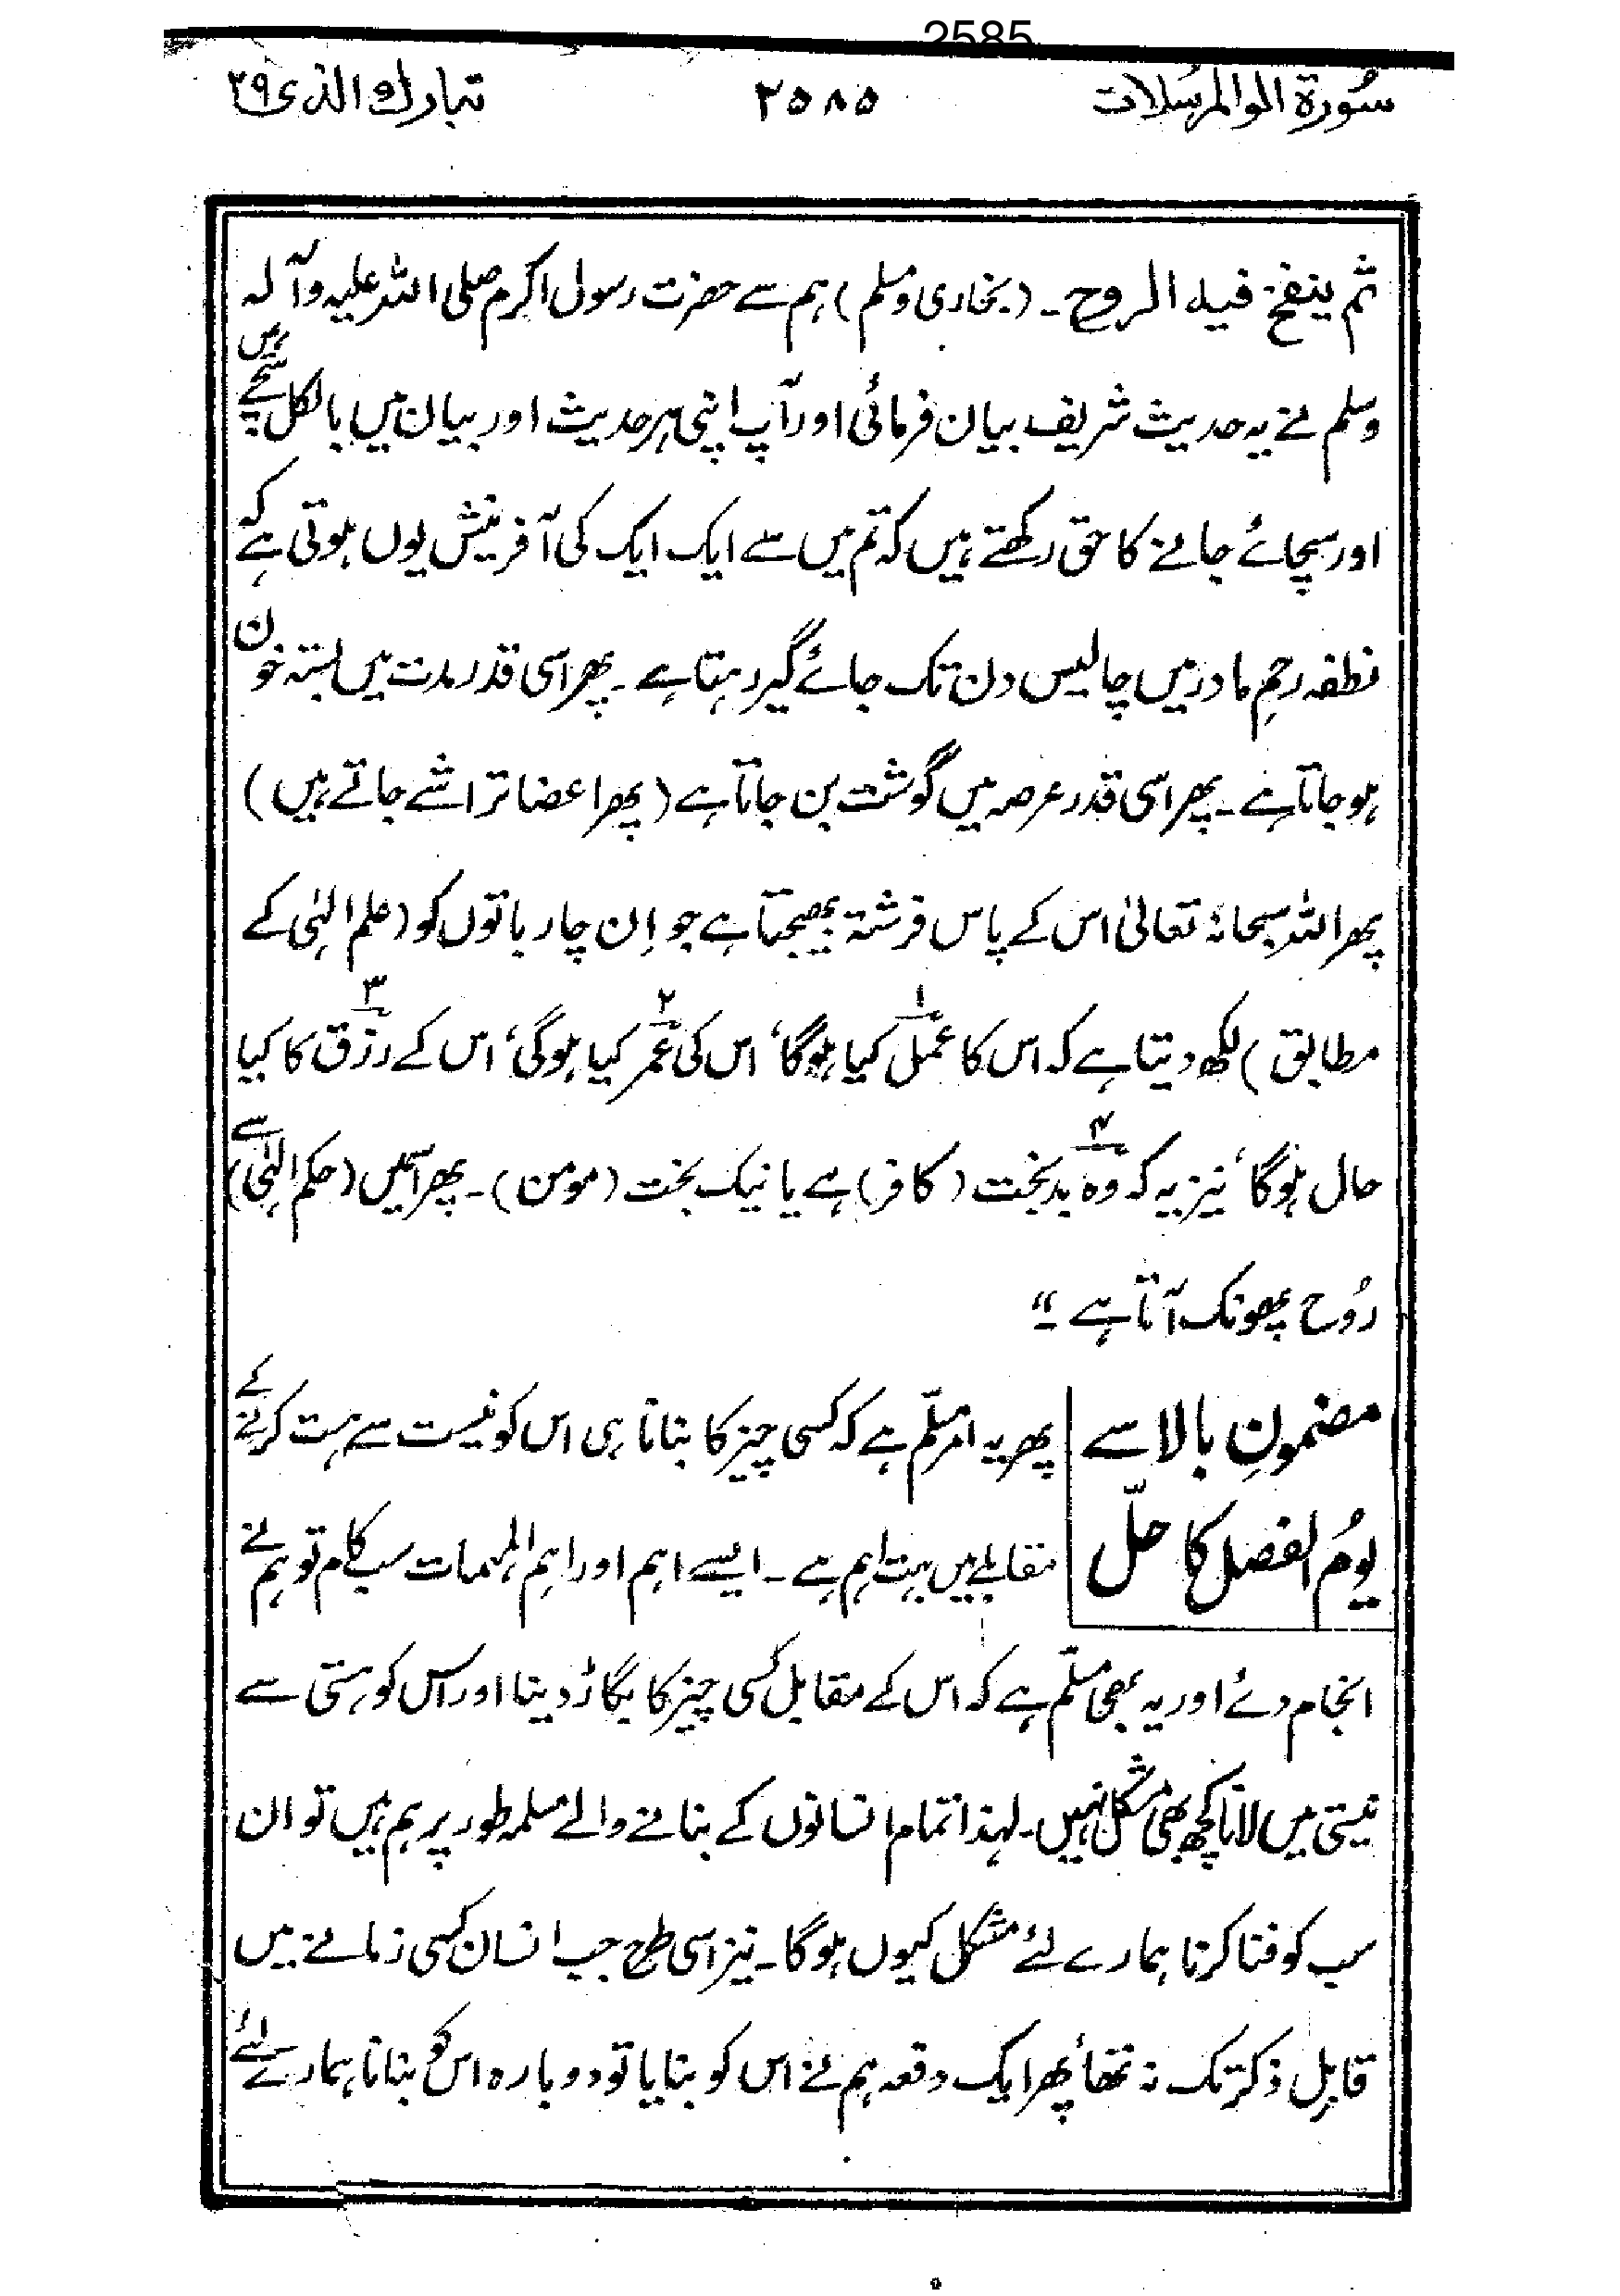 2585
سُورۃ الو المرسلات ۲۵۸۵ تبارك الذی ۲۹
ثم ينفخ فيه الروح۔ (بخاری و مسلم) ہم سے حضرت رسول اکرم صلی اللہ علیہ وآلہ
وسلم نے یہ حدیث شریف بیان فرمائی اور آپ اپنی ہر حدیث اور بیان میں بالکل سچے ہیں
اور سچائے جانے کا حق رکھتے ہیں کہ تم میں سے ایک ایک کی آفرینش یوں ہوتی ہے کہ
نطفہ رحمِ مادر میں چالیس دن تک جائے گیر رہتا ہے۔ پھر اسی قدر مدت میں بستہ خون
ہو جاتا ہے۔ پھر اسی قدر عرصہ میں گوشت بن جاتا ہے (پھر اعضا تراشے جاتے ہیں)
پھر اللہ سبحانہٗ تعالیٰ اس کے پاس فرشتہ بھیجتا ہے جو اِن چار باتوں کو (علم الہٰی کے
مطابق) لکھ دیتا ہے کہ اس کا ۱ عمل کیا ہوگا، اس کی ۲ عمر کیا ہوگی، اس کے ۳ رزق کا کیا
حال ہوگا، نیز یہ کہ ۴ وہ بدبخت (کافر) ہے یا نیک بخت (مومن)۔ پھر اسمیں (حکم الہٰی سے)
رُوح پھونک آتا ہے۔"
مضمونِ بالا سے پھر یہ امر مسلّم ہے کہ کسی چیز کا بنانا ہی اس کو نیست سے ہست کرنے کے
یومُ الفصل کا حلّ مقابلے میں بہت اہم ہے۔ ایسے اہم اور اہم المہمات سب کام تو ہم نے
انجام دئے اور یہ بھی مسلّم ہے کہ اس کے مقابل کسی چیز کا بگاڑ دینا اور اس کو ہستی سے
نیستی میں لانا کچھ بھی مشکل نہیں۔ لہٰذا تمام انسانوں کے بنانے والے مسلمہ طور پر ہم ہیں تو ان
سب کو فنا کرنا ہمارے لئے مشکل کیوں ہوگا۔ نیز اسی طرح جب انسان کسی زمانے میں
قابلِ ذکر تک نہ تھا، پھر ایک دفعہ ہم نے اس کو بنایا تو دوبارہ اس کو بنانا ہمارے لئے